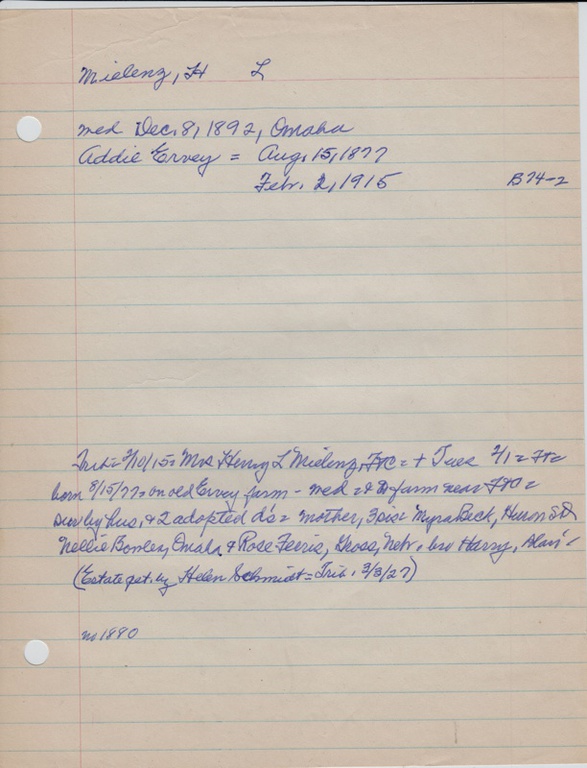 Mielenz, H L
med Dec. 8, 1892, Omaha
Addie Ervey = Aug. 15, 1877
Feb. 2, 1915 B74-2
Trib = 2/10/15 = Mrs Henry L Mielenz, FtC = + Tues 2/1 = Ft =
born 8/15/77 = on old Ervey farm - med = & to farm near FtC =
surv by hus, & 2 adopted d's = mother, 3 sis = Myra Beck, Huron SD
Nellie Bowley, Omaha & Rose Ferris, Gross, Nebr. bro Harry,
(Estate pet. by Helen Schmidt = Trib. 3/3/27)
no 1880